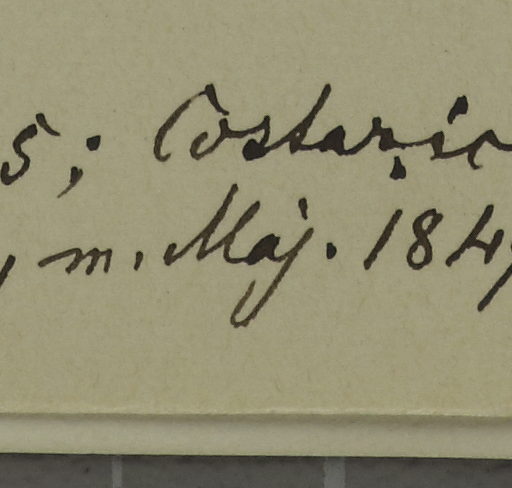 5; Costaric
m. Maj. 184